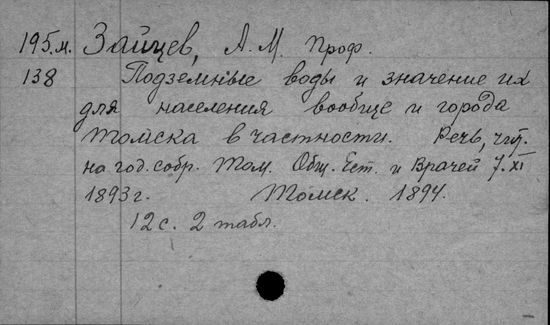 195.м. Зайцев, А. М. проф.
138 Подземные воды и значение их
для населения вообще и города
Томска в частности. Речь, чит.
на год. собр. Том. Общ. Ест. и Врачей 7.XI
1893 г. Томск. 1894.
12 с. 2 табл.